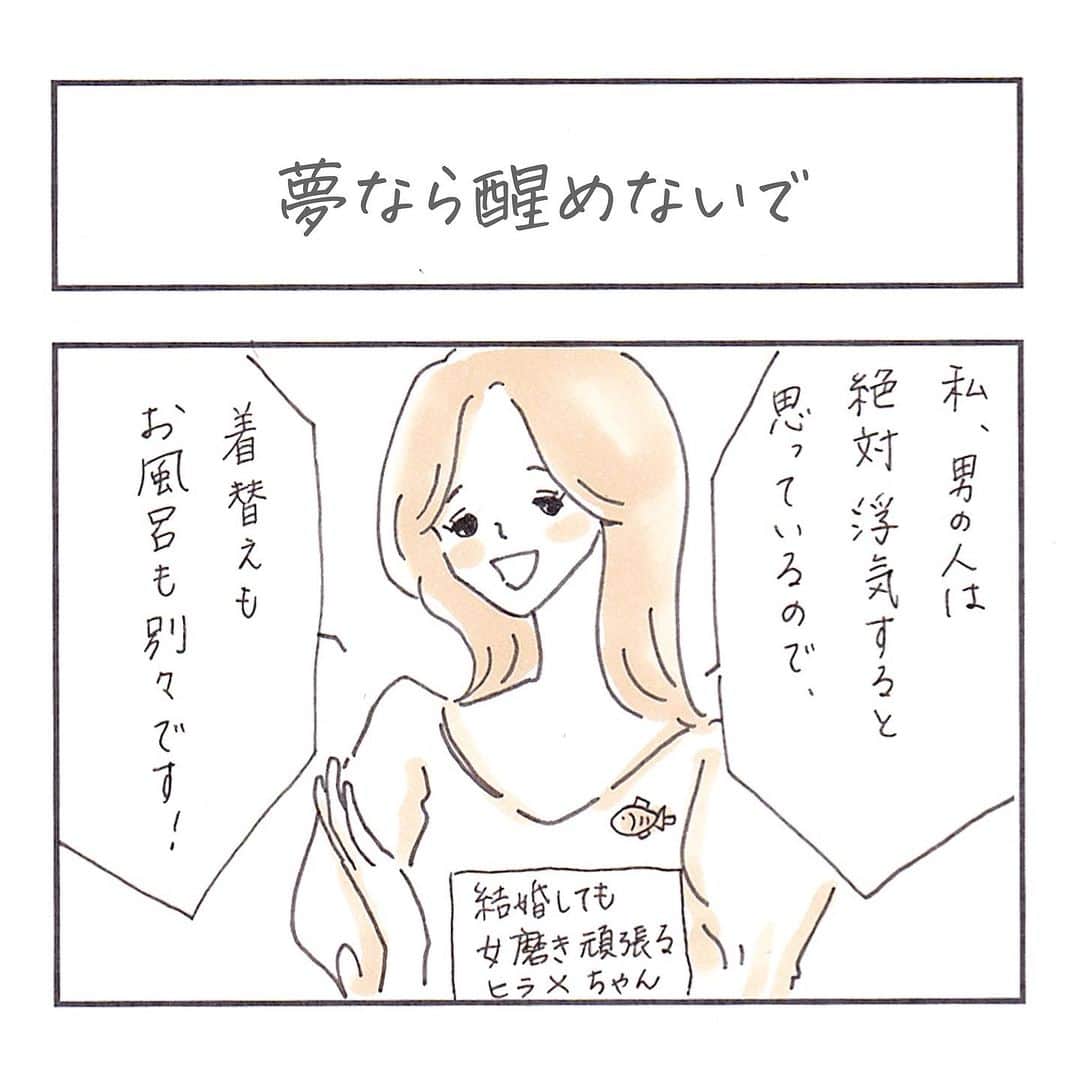 夢なら醒めないで
私、男の人は
絶対浮気すると
思っているので、
着替えも
お風呂も別々です！
結婚しても
女磨き頑張る
ヒラメちゃん